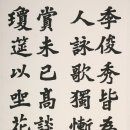 季俊秀皆為
人詠歌獨慚
賞未已高談
瓊筵以坐花